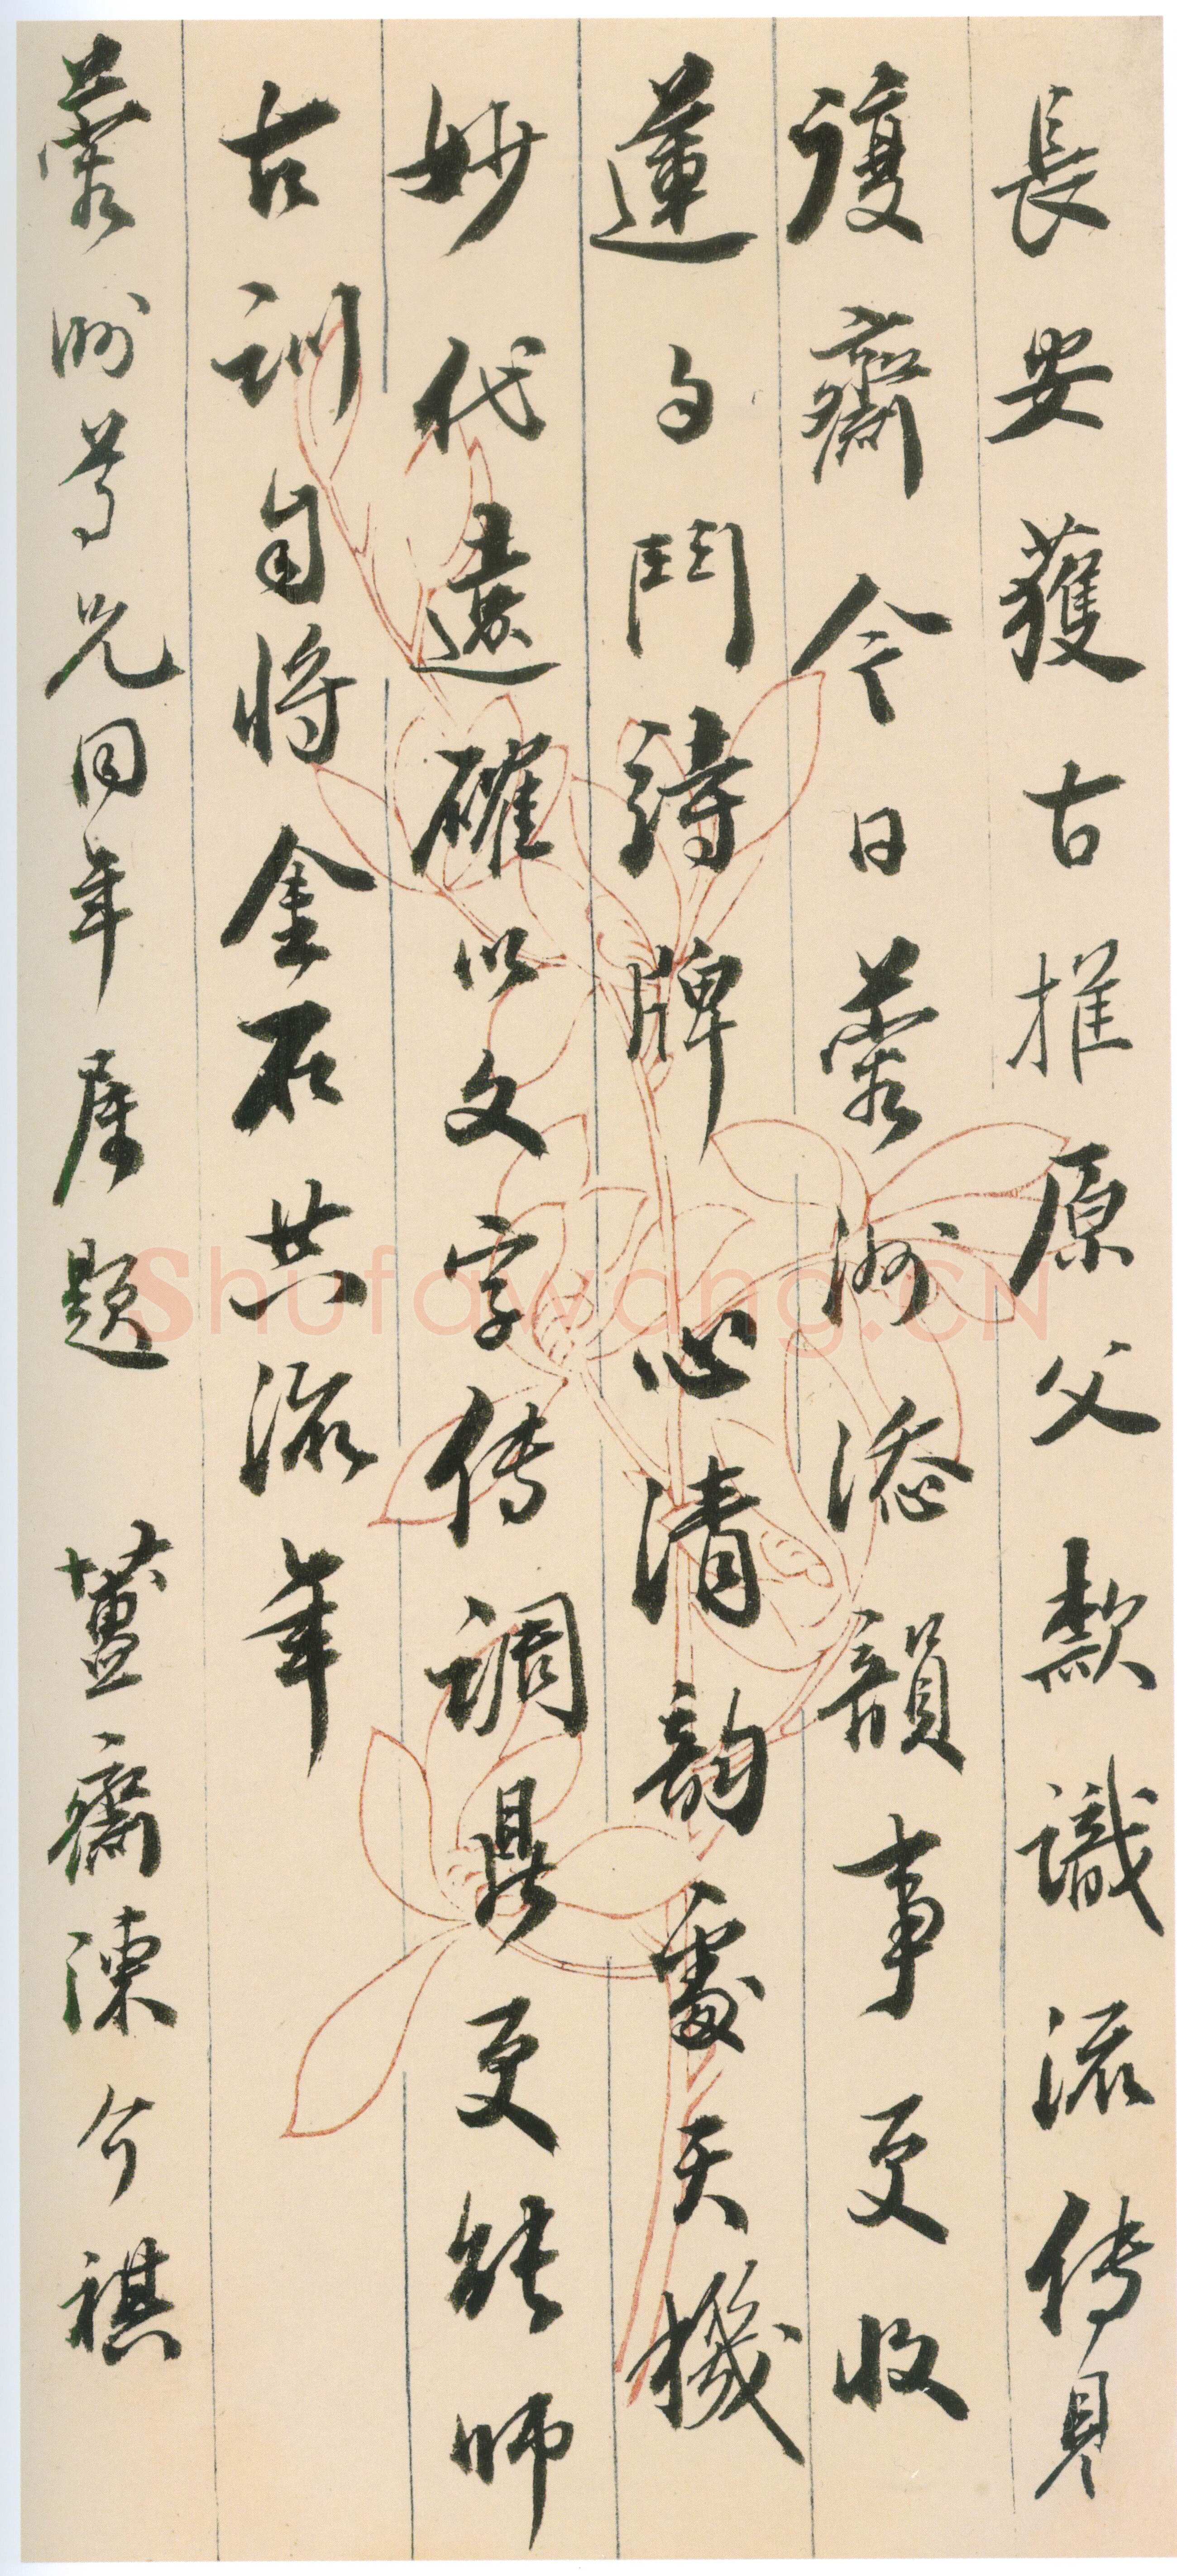 長安獲古推原父款識流传見
復齋今日蓉洲添韻事更收
蓮勺鬥詩牌心清韵處天機
妙代遠確以文字传調鼎更能師
古訓自將金石共流年
蓉洲尊兄同年属題 簠齋陳介祺
Shufawang.CN